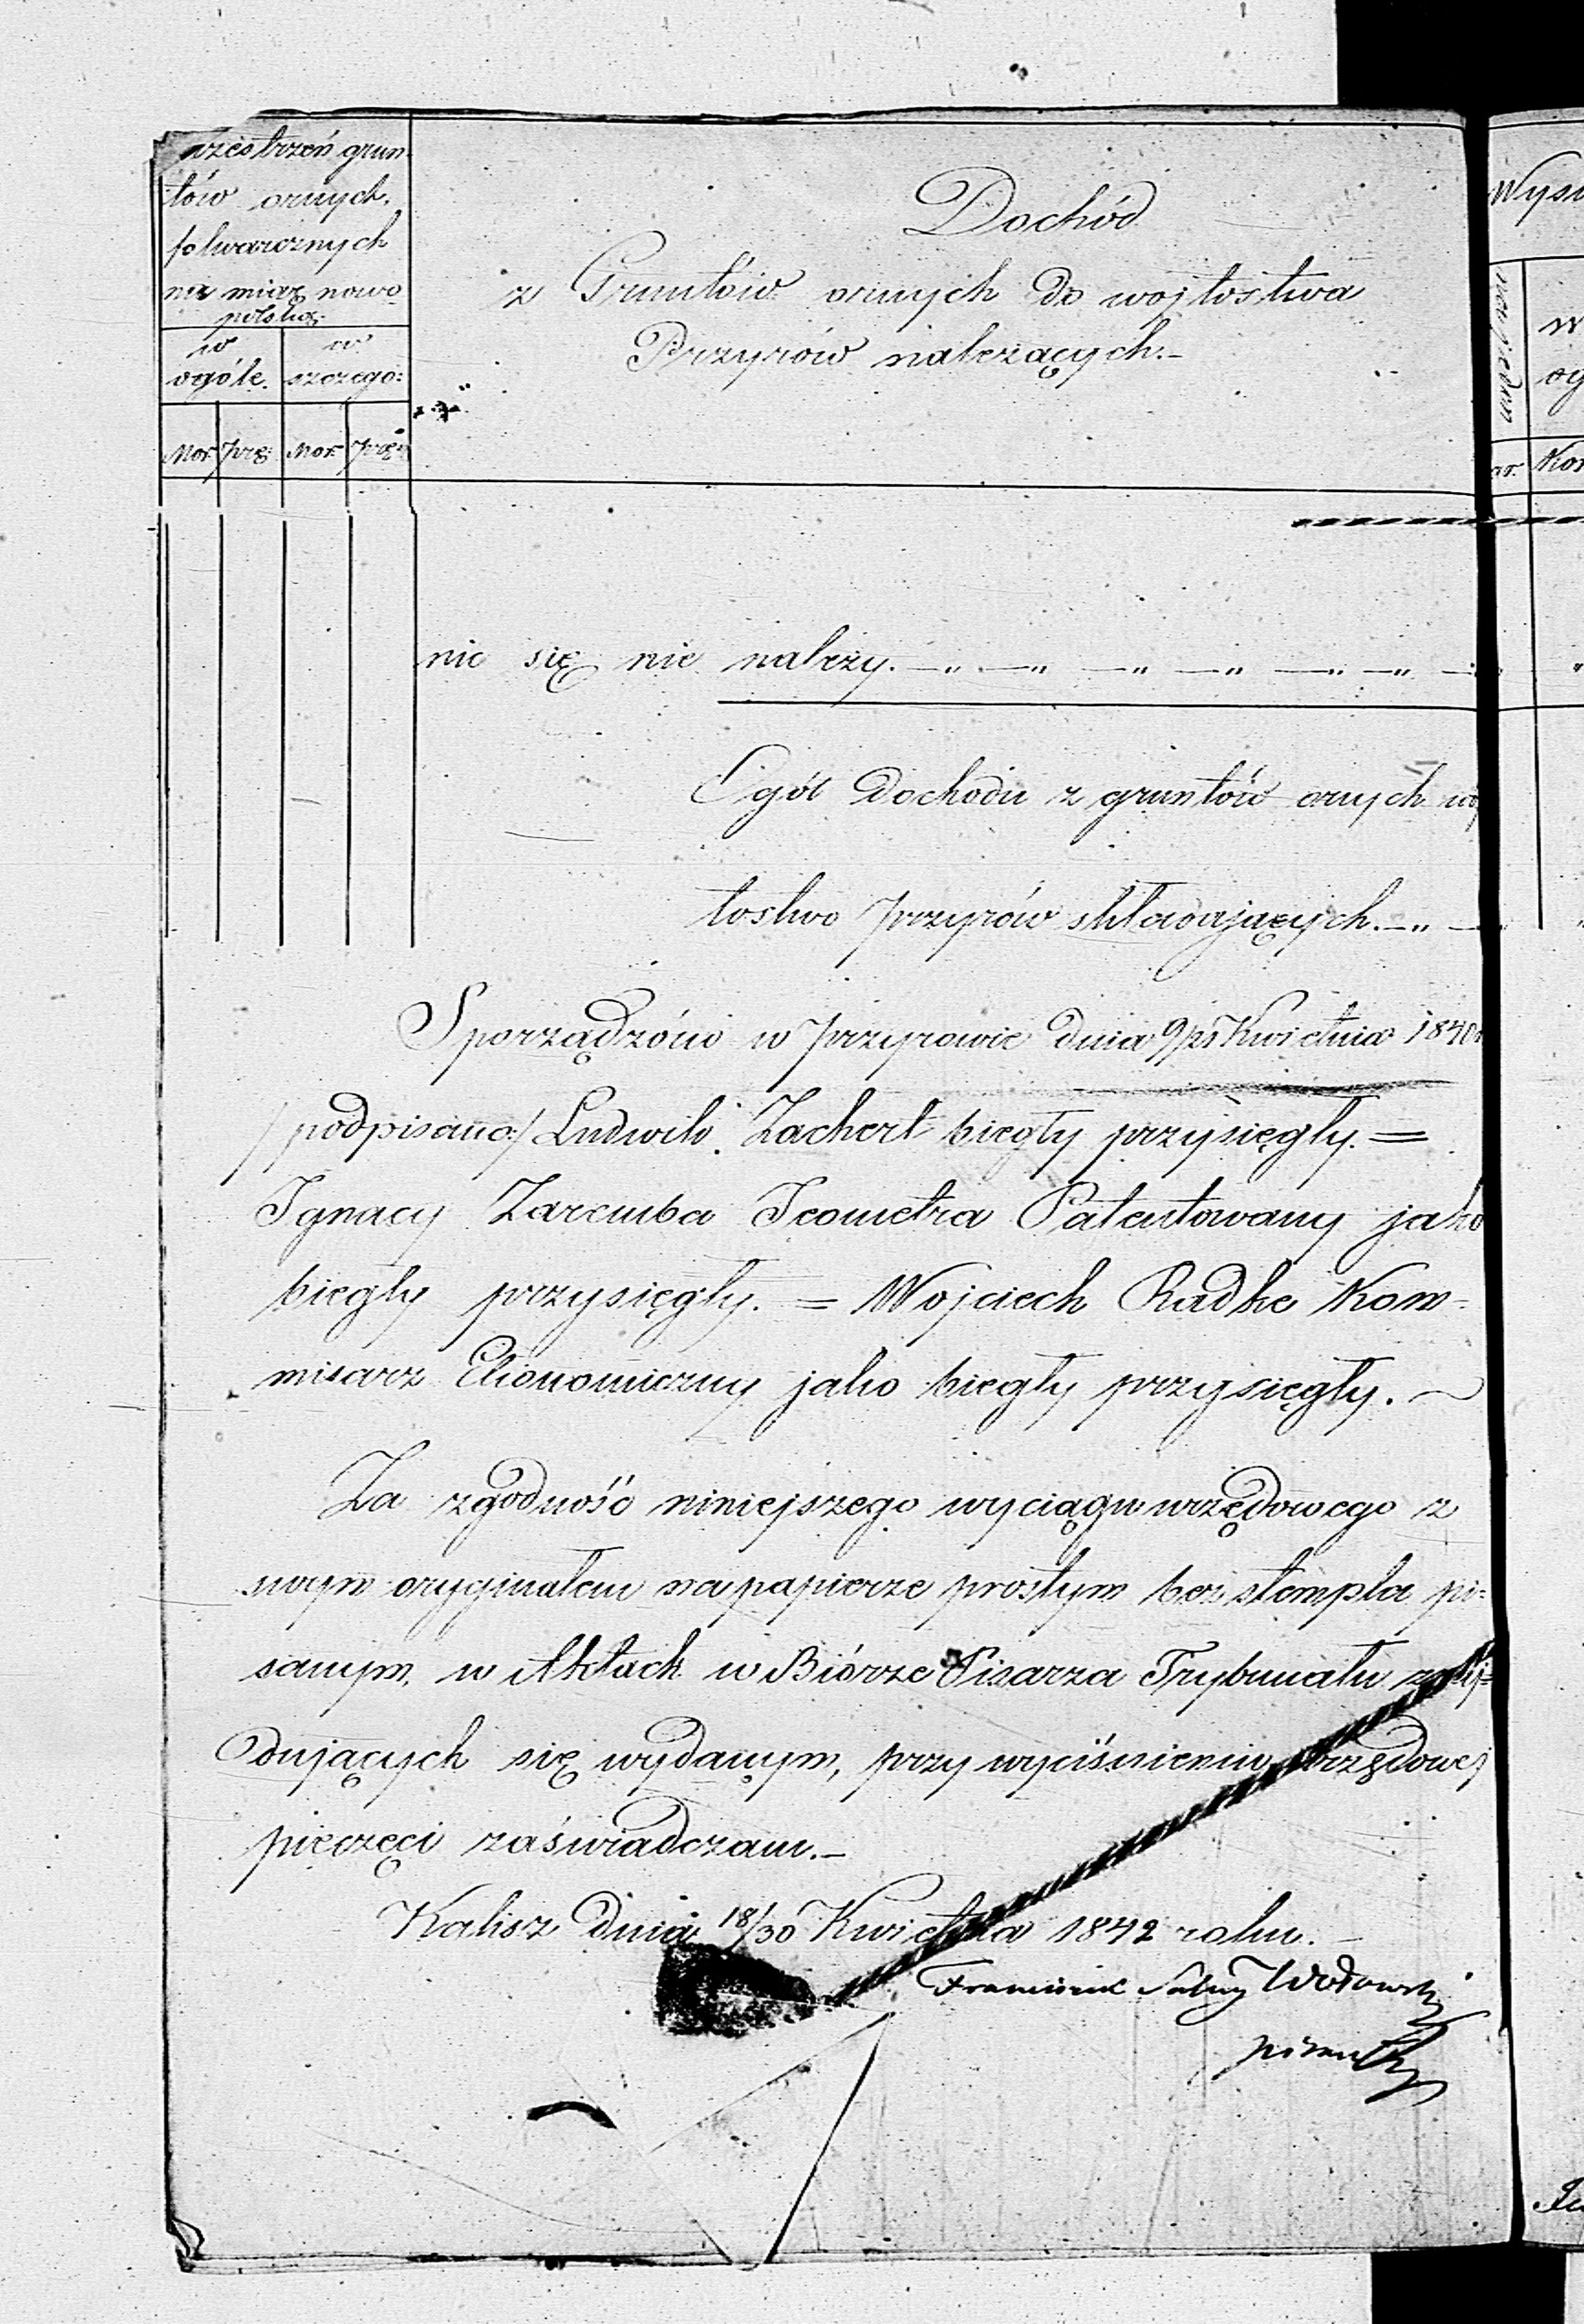 Przestrzeń grun-
tów ornych
folwarcznych
na miarę nowo
polską
w
ogóle.
w
szczegó:
Mor. Prę: Mor. Pręt
Dochód
z Gruntów ornych do wojtostwa
Przyrów należących.-
Wysi
w
og
ar. Kor
nic się nie należy. —„ —„ —„ —„ —„ —„ —
Ogół dochodu z gruntów ornych woj
tostwo Przyrów składających.—„ —
Sporządzóno w Przyrowie dnia 9/21 Kwietnia 1840r
/podpisano:/ Ludwik Zachert biegły przysięgły. =
Ignacy Zaremba Jeometra Patentowany jako
biegły przysięgły. = Wojciech Radke Kom-
misarz Ekonomiczny jako biegły przysięgły. ~
Za zgodność niniejszego wyciągu urzędowego z
swym oryginałem na papierze prostym bez stempla pi=
sanym, w Aktach w Biórze Pisarza Trybunału znaj=
dujących się wydanym, przy wyciśnieniu urzędowej
pieczęci zaświadczam.-
Kalisz dnia 18/30 Kwietnia 1842 roku.-
Franciszek Salezy Wołowski
pisarz